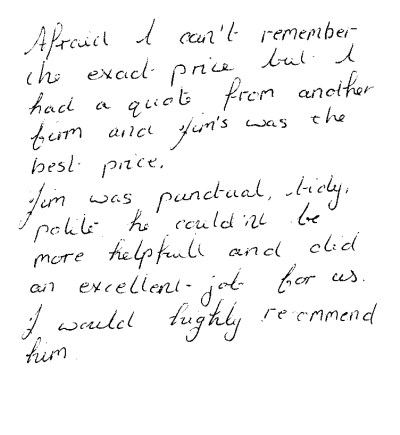 Afraid I can't remember
the exact price but I
had a quote from another
firm and Jim's was the
best price.
Jim was punctual, tidy,
polite he could'nt be
more helpfull and did
an excellent job for us.
I would highly recommend
him